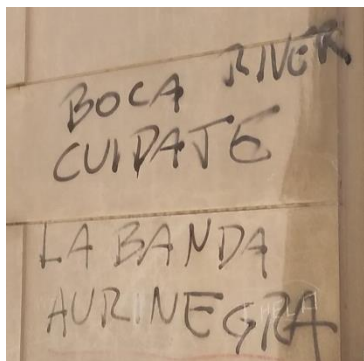 BOCA RIVER
CUIDATE
LA BANDA
AURINEGRA